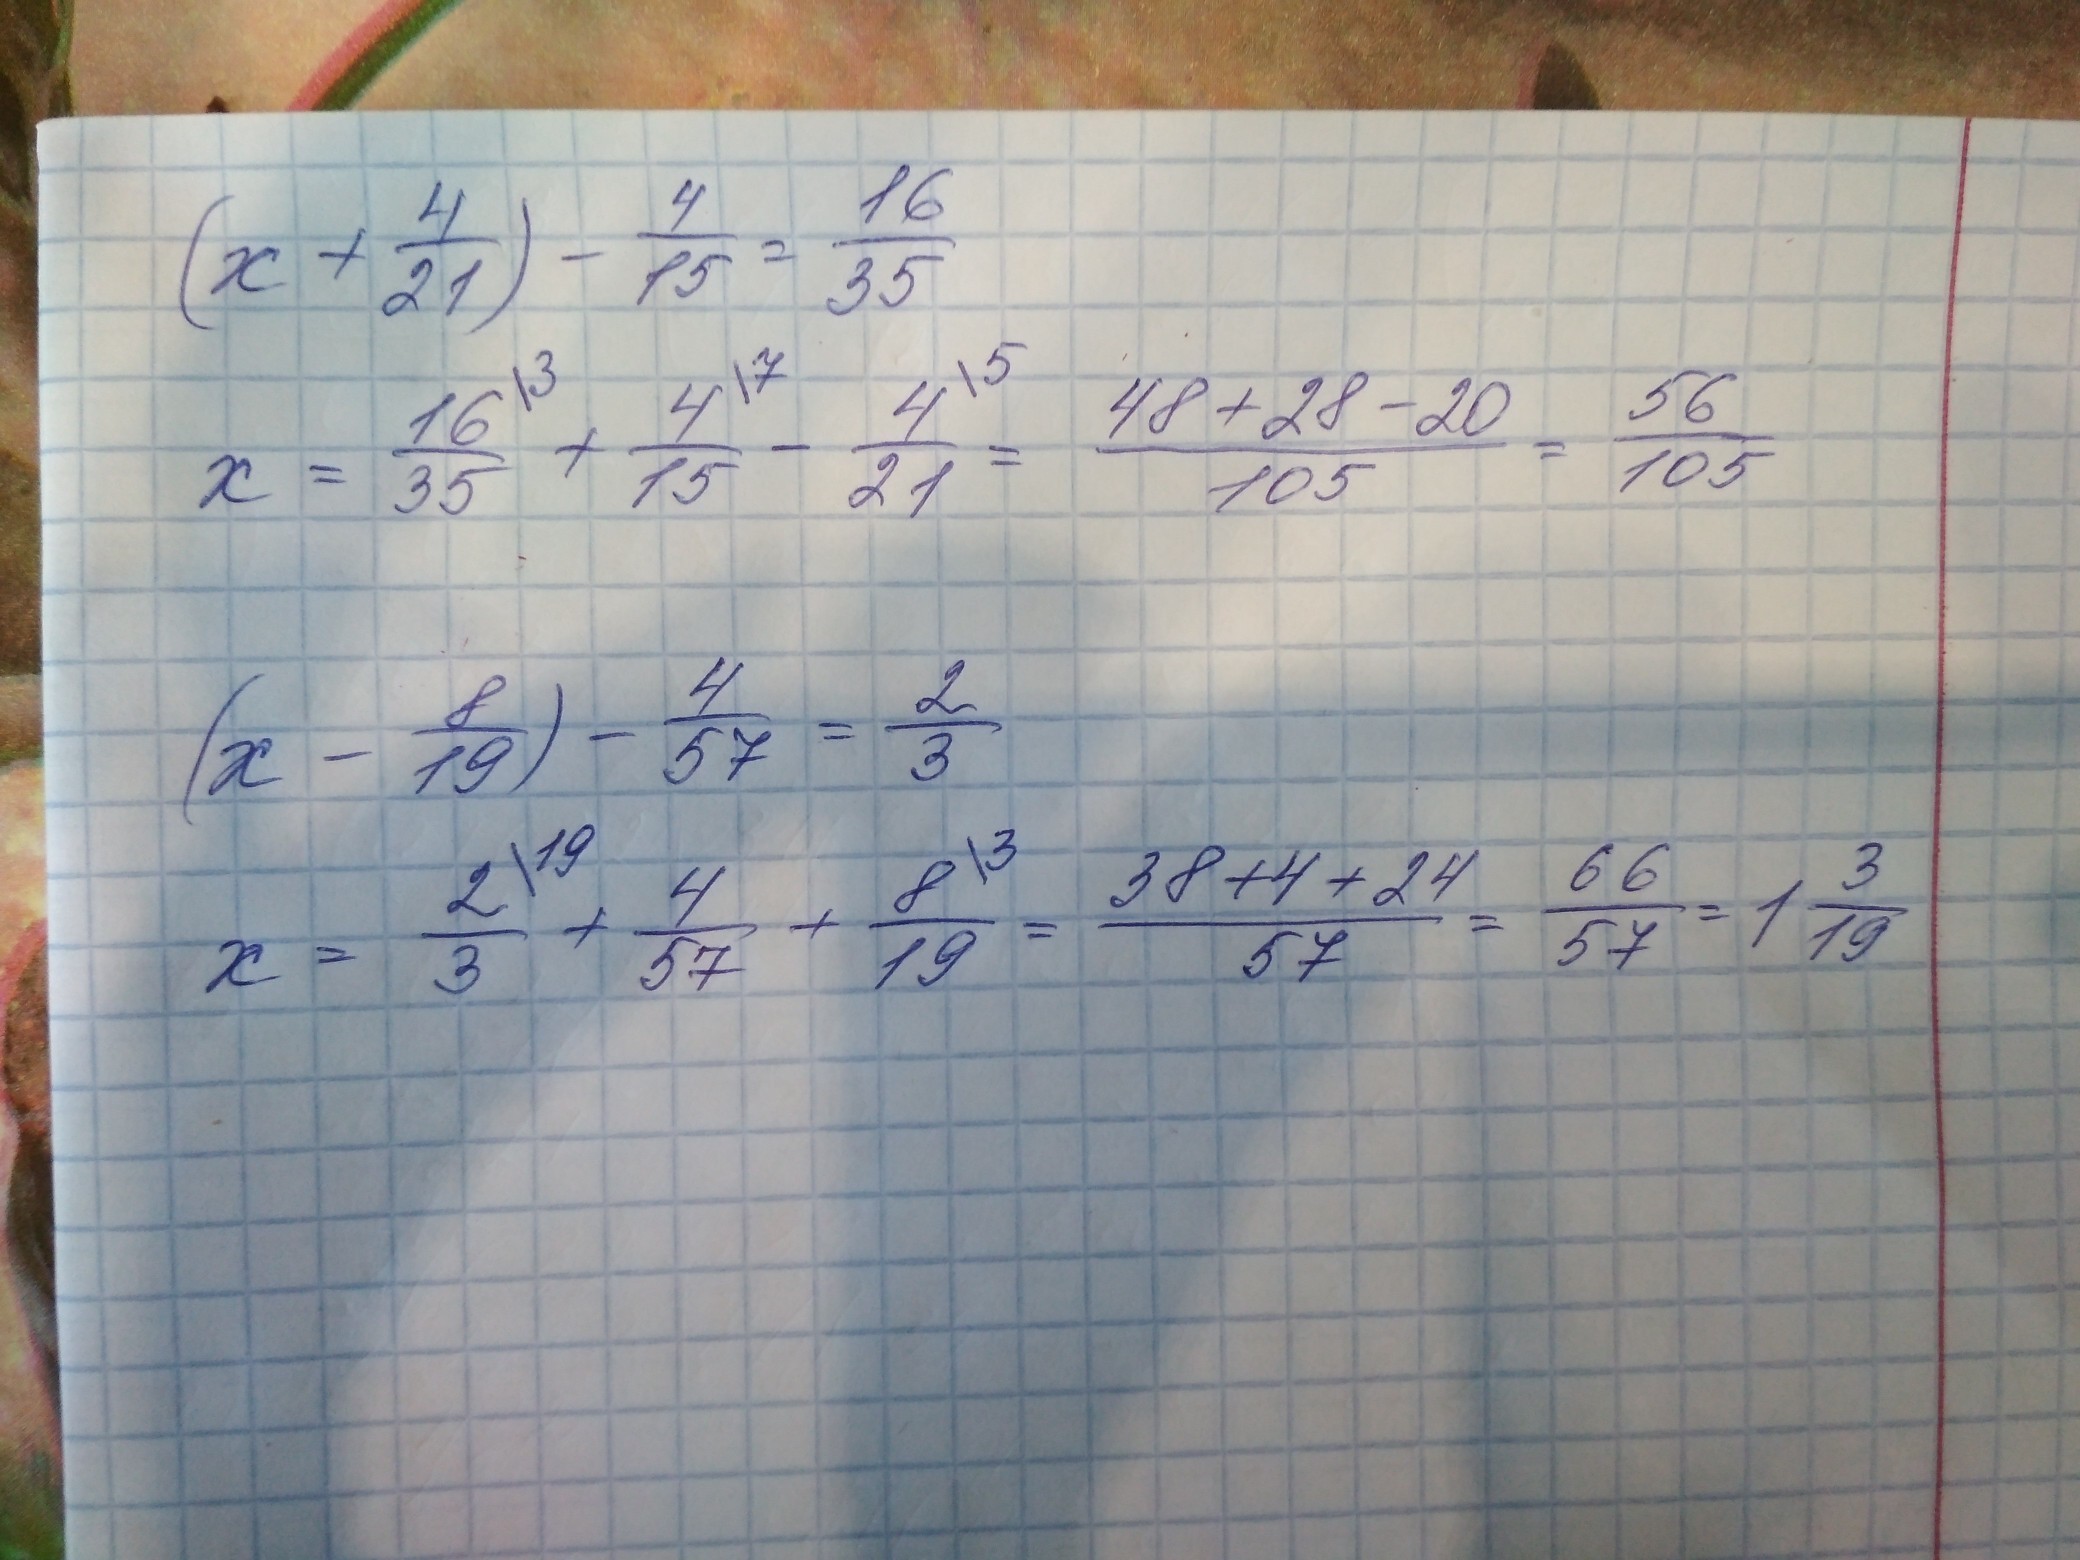 (x + 4/21) - 4/15 = 16/35
x = 16\3/35 + 4\7/15 - 4\5/21 = 48+28-20/105 = 56/105
(x - 8/19) - 4/57 = 2/3
x = 2\19/3 + 4/57 + 8\3/19 = 38+4+24/57 = 66/57 = 1 3/19